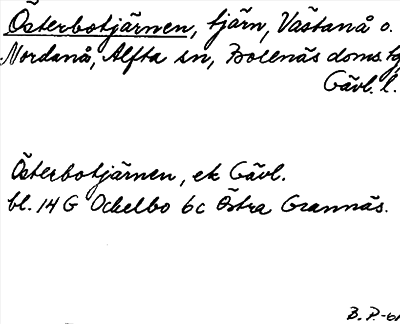 Österbotjärnen, tjärn, Västanå o.
Nordanå, Alfta sn, Bollnäs doms. tg
Gävl. l.
Österbotjärnen, ek Gävl.
bl. 14 G Ockelbo 6c Östra Grannäs.
B. P.-61